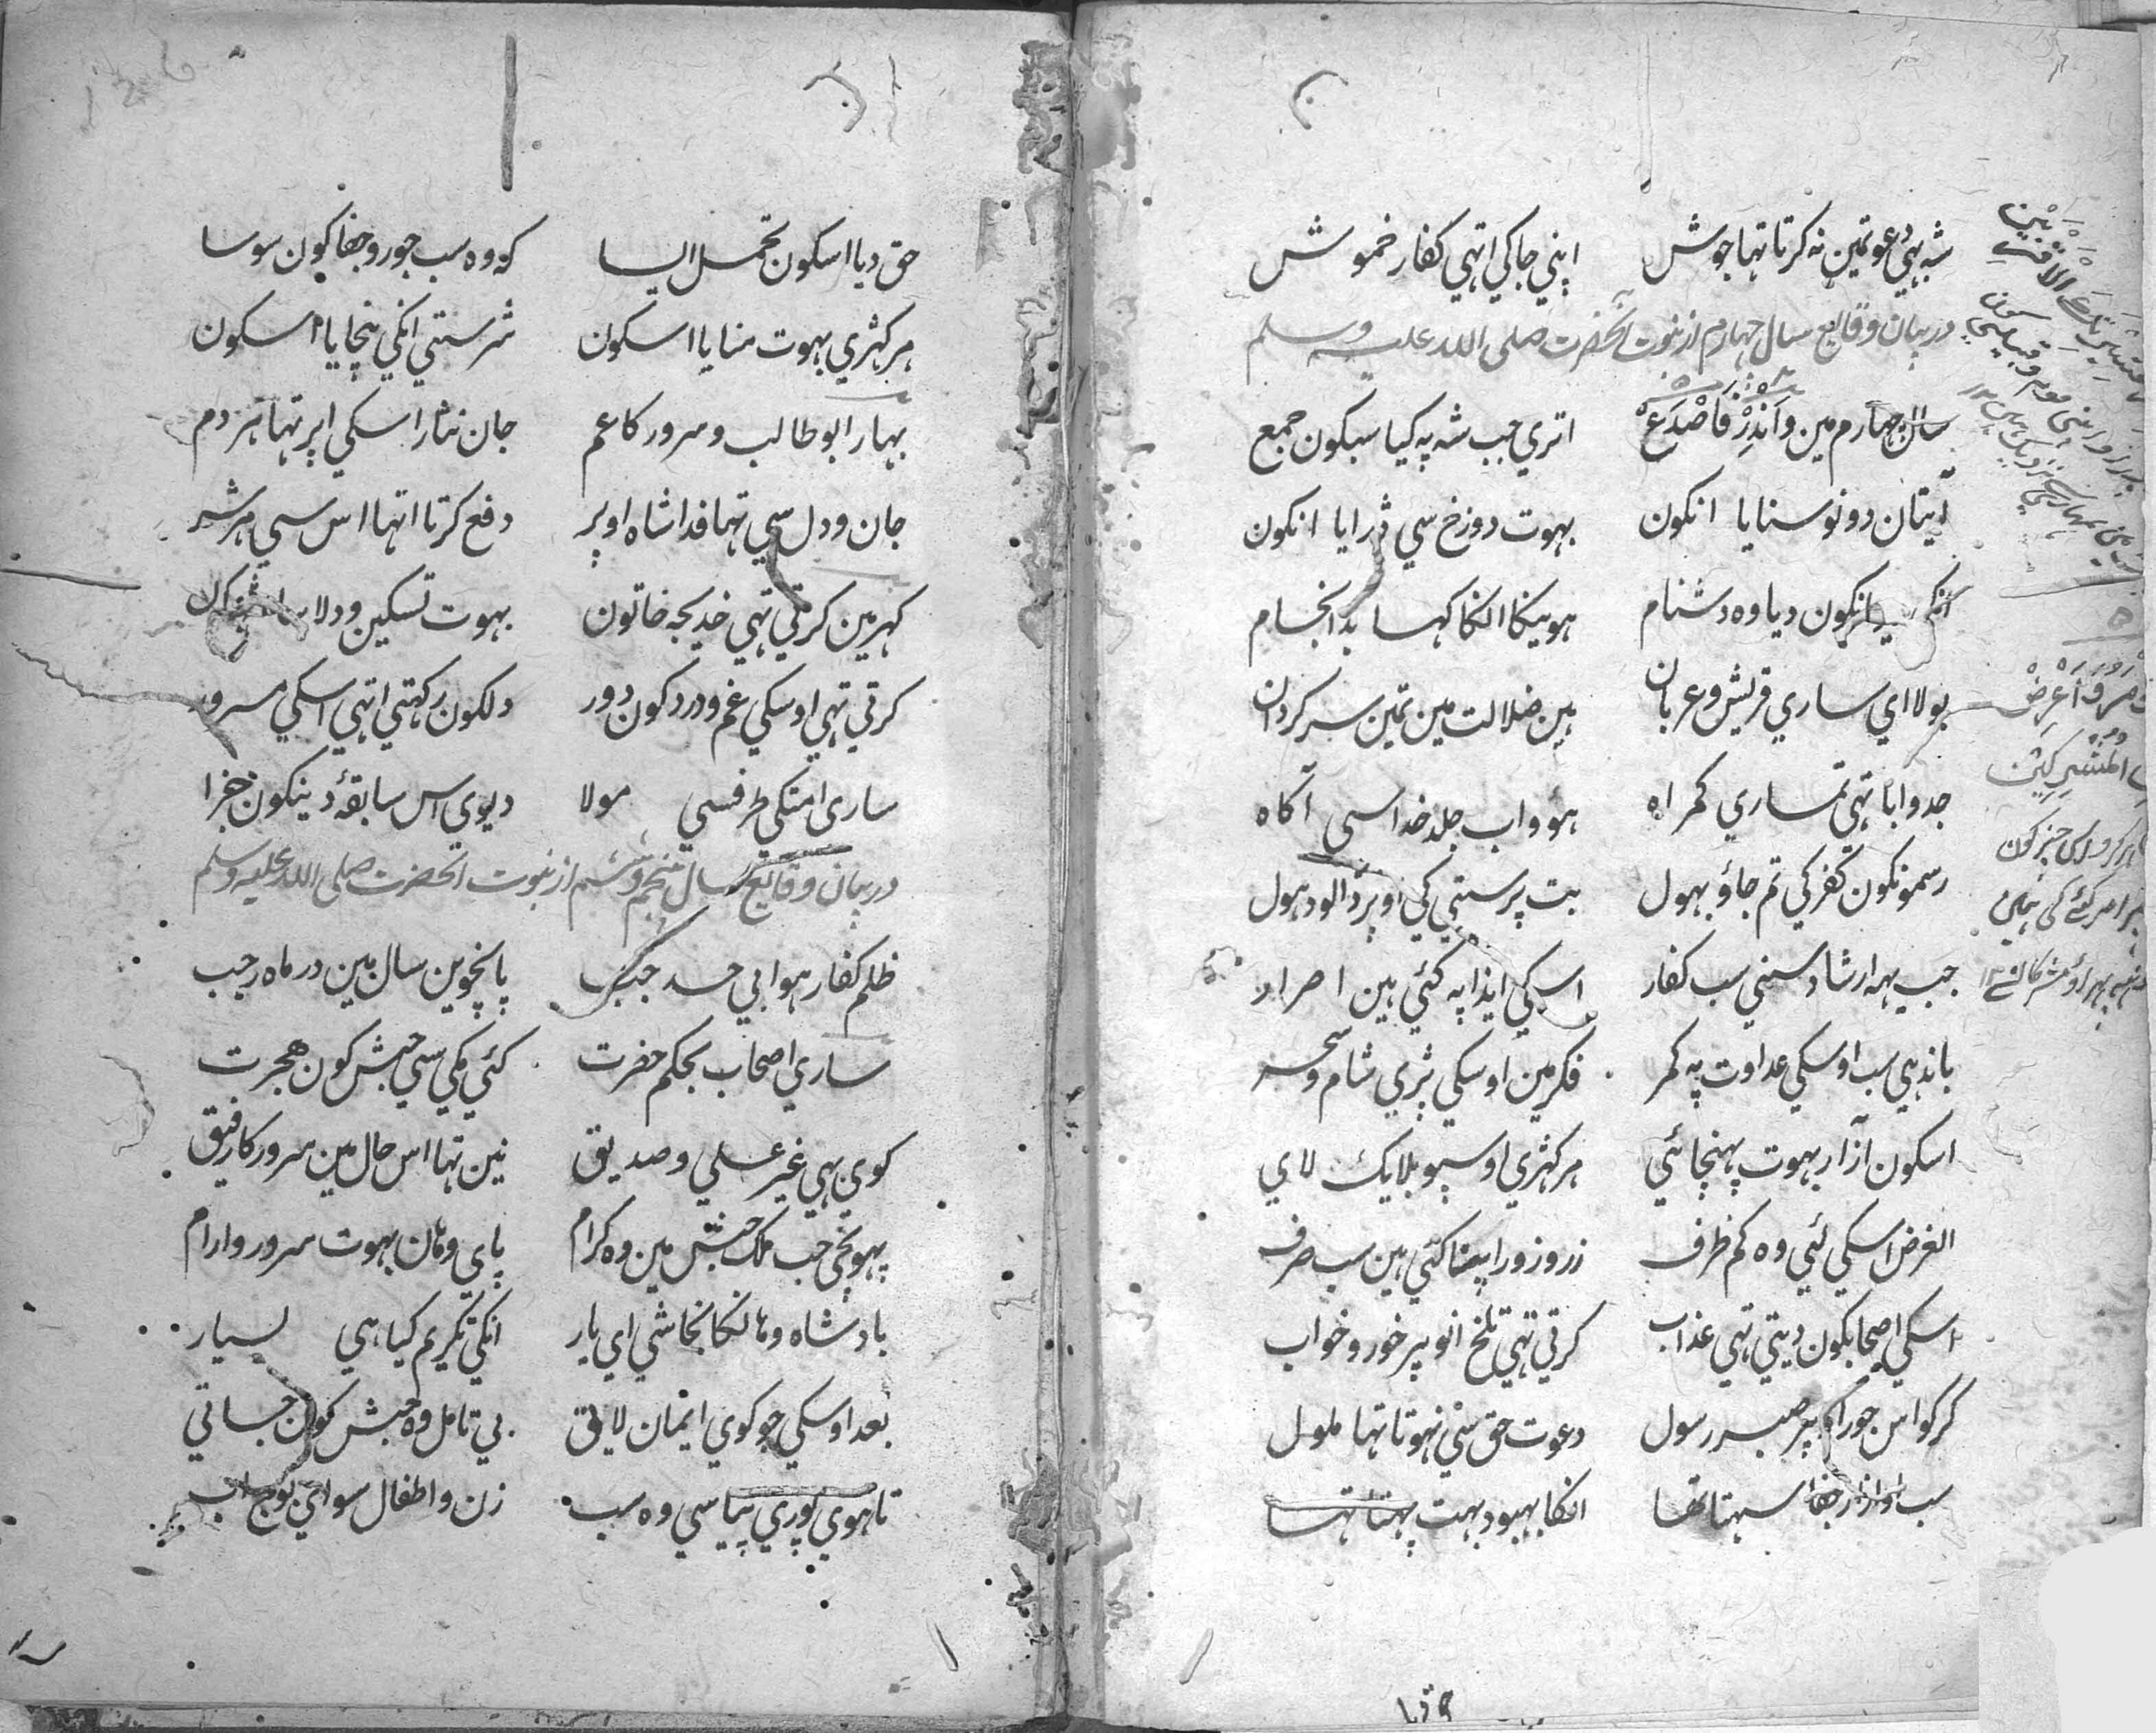 شہ بهي دعوتمين نہ کرتا تها جوش اپني جاکي اتهي کفار خموش
در بيان وقايع سال چهارم از نبوت آنحضرت صلی الله عليه وسلم
سال چهارم مين وَاَنْذِرْ فَاصْدَعْ اتري جب شہ پہ کيا سبکون جمع
آيتان دونو سنايا انکون بہوت دوزخ سي ڈرايا انکون
انکون ديا وه دشنام هويکا انکا کہا بد انجام
بولا اي ساري قريش وعربان ہين ضلالت مين تمين سرکردان
جد و ابا تہي تمہاري کمراه هوٴو اب جلد خدا سي آکاه
رسمونکون کفر کي تم جاوٴ بهول بت پرستي کي اوپر ڈالو دهول
جب يہہ ارشاد سني سب کفار اسکي ايذا پہ کئي ہين اصرار
باندہي سب اوسکي عداوت پہ کمر فکر مين اوسکي پڑي شام وسحر
اسکون آزار بہوت پہنچائي هر کهڑي اوسپو بلا يک لاي
الغرض اسکي لئي وه کم ظرف زر و زور اپنا کئي ہين سب صرف
اسکي اصحابکون ديتي تهي عذاب کرتي تهي تلخ انو پر خور وخواب
کر کو اس جور اوپر صبر رسول دعوت حق سي نہوتا تها ملول
سب او ازار جفا سہتا تها انکا بهبود بہت چہتا تہا
اَلْاَقْرَبِيْنَ
وَاَعْرِضْ
الْمُشْرِكِيْنَ
حق ديا اسکون تحمل ايسا کہ وه سب جور وجفا کون سوسا
هر کهڑي بہوت منايا اسکون شر ستي انکي بنچايا اسکون
بہار ابو طالب و سرور کا عم جان نثار اسکي اپر تها هر دم
جان ودل سي تها فدا شاه اوپر دفع کرتا اتها اس سي هر شر
کهر مين کرتي تهي خديجہ خاتون بہوت تسکين و دلاسا
کرتي تهي اوسکي غم ودرد کون دور دلکون رکهتي اتهي اسکي مسرور
ساري امتکي طرفسي مولا ديوي اس سابقہٴ دينکون جزا
در بيان وقايع سال پنجم وششم از نبوت انحضرت صلی الله عليه وسلم
ظلم کفار هوا بي حد جب پانچوين سال مين در ماه رجب
ساري اصحاب بحکم حضرت کئي مکي سي حبش کون هجرت
کوي بهي غير علي و صديق نين تها اس حال مين سرور کا رفيق
پہونچي جب ملک حبش مين وه کرام پاي وهان بہوت سرور وارام
بادشاه وهانکا نجاشي اي يار انکي تکريم کيا هي بسيار
بعد اوسکي جو کوي ايمان لاتي بي تامل وه حبش کون جاتي
تا هوي پوري بياسي وه سب زن و اطفال سواي